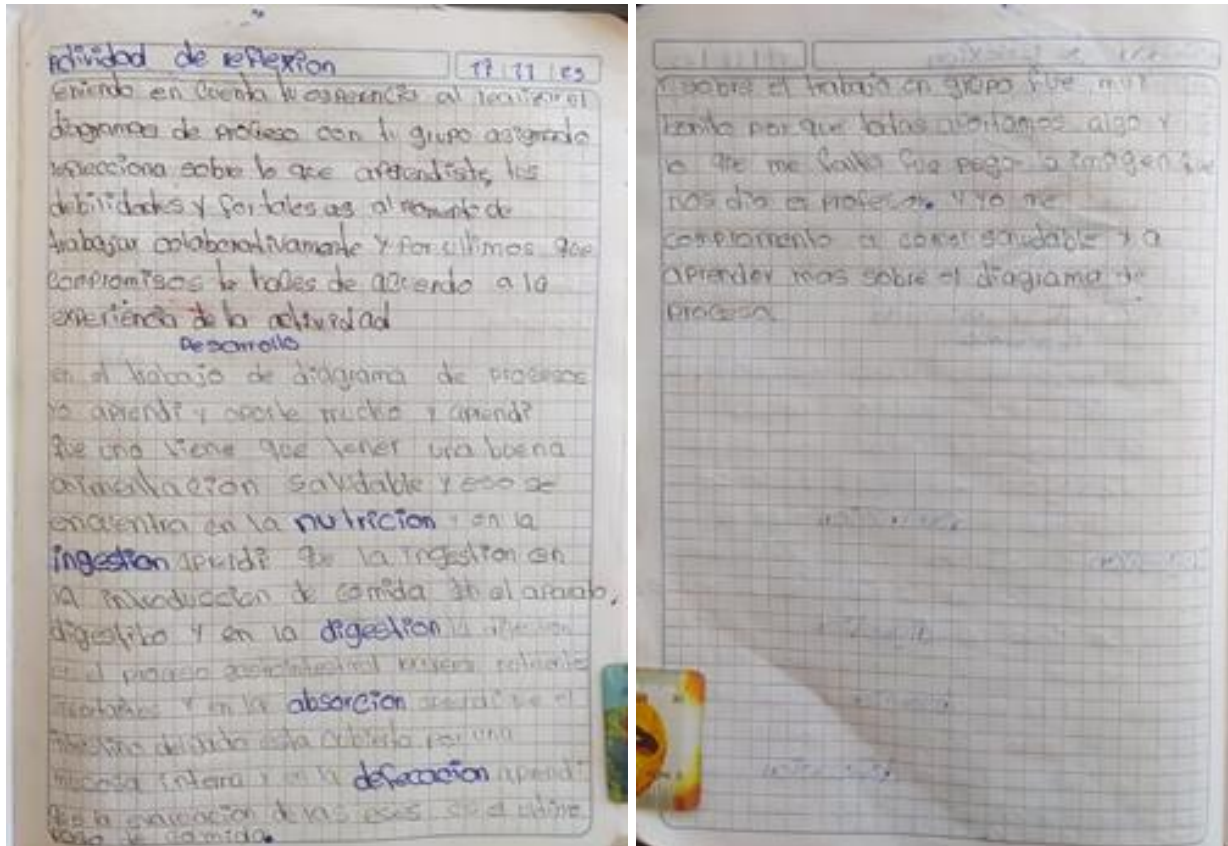 actividad de reflexion
17 11 23
teniendo en cuenta tu experencia al realizar el
diagrama de proceso con tu grupo asignado
reflecciona sobre lo que aprendiste, los
debilidades y fortalesas al momento de
trabajar colaborativamente y por ultimos que
compromisos te haces de acuerdo a la
experiencia de la actividad
Desarrollo
en el trabajo de diagrama de procesos
yo aprendi y aporte mucho y aprendi
que uno tiene que tener una buena
alimentacion saludable y eso se
encuentra en la nutricion y en la
ingestion aprendi que la ingestion en
la introduccion de comida en el aparato,
digestibo y en la digestion la
en el proceso gastrointestinal
y en la absorcion aprendi que el
intestino delgado esta cubierto por una
mucosa interna y en la defecacion aprendi
que la evacuacion de las eses es el ultimo
paso de comida.
y sobre el trabajo en grupo fue muy
bonito por que todas aportamos algo y
lo que me falto fue pegar la imagen que
nos dio el profesor. y yo me
compromento a comer saludable y a
aprender mas sobre el diagrama de
proceso